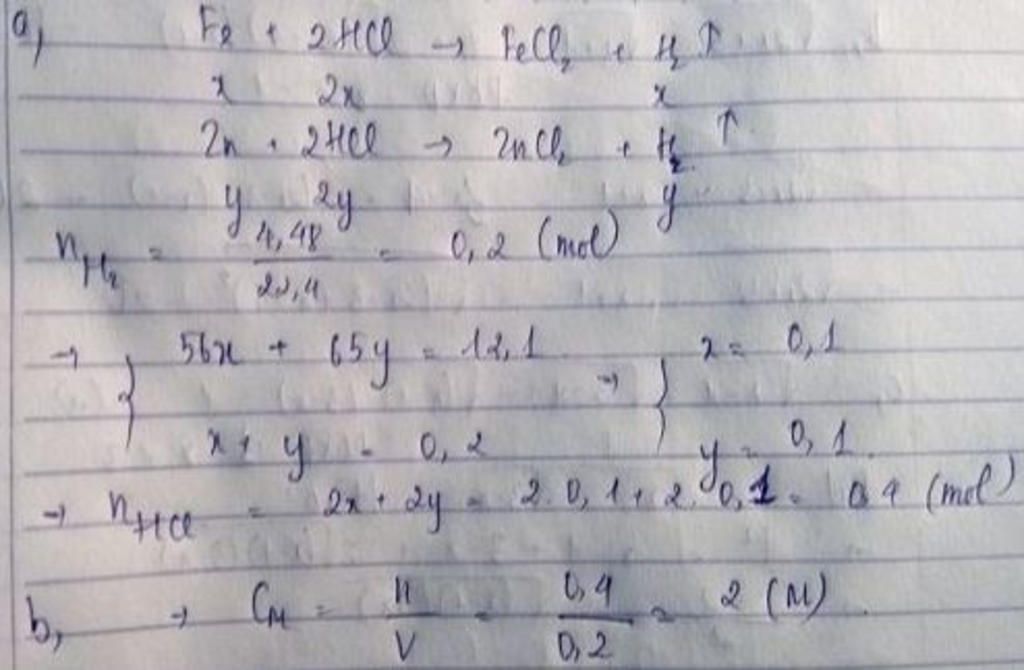 a, Fe + 2HCl → FeCl₂ + H₂ ↑
x 2x x
Zn + 2HCl → ZnCl₂ + H₂ ↑
y 2y y
n_H₂ = 4,48 / 22,4 = 0,2 (mol)
→ { 56x + 65y = 12,1 → { x = 0,1
x + y = 0,2 y = 0,1
→ n_HCl = 2x + 2y = 2.0,1 + 2.0,1 = 0,4 (mol)
b, → C_M = n / V = 0,4 / 0,2 = 2 (M)